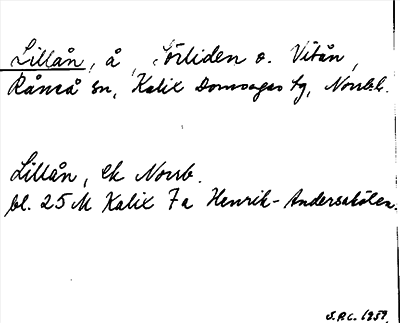 Lillån, å, Sörliden o. Vitån,
Råneå sn, Kalix Domsagas tg, Norrb.
Lillån, ek Norrb.
bl. 25 M Kalix 7a Henrik-Andersahölen.
S.P.C. 1959.